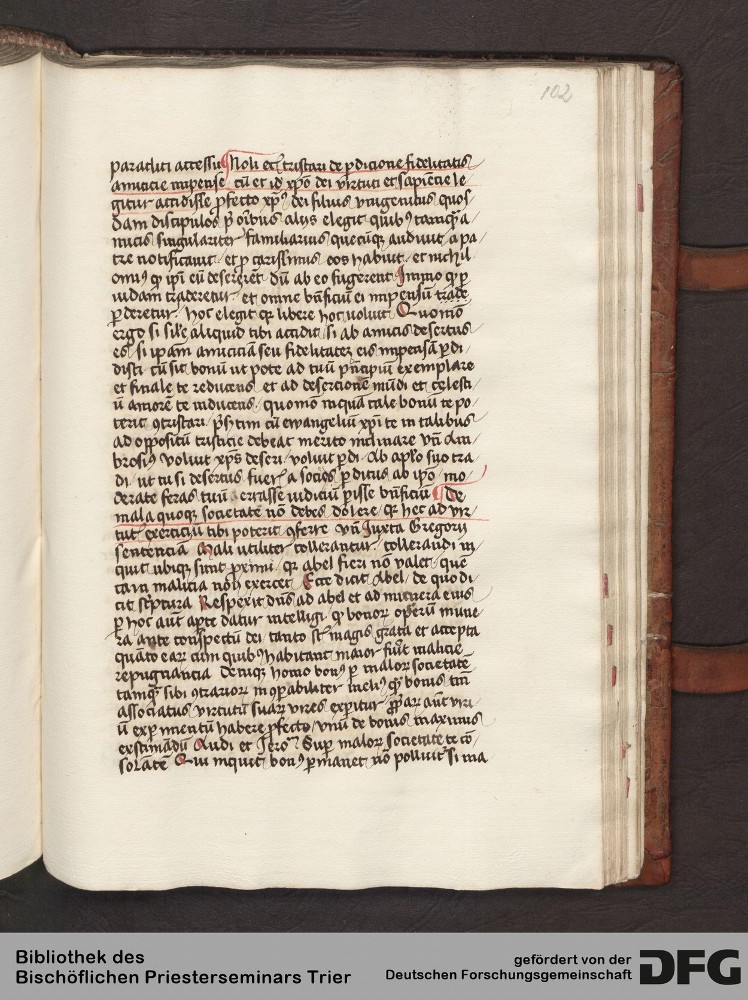 102
paracliti accessu Noli eciā tristari de ꝑdicione fidelitatis
amicicie impense cū et id xp̄o dei virtuti et sapiēcie le
gitur accidisse ꝓfecto xp̄ꝰ dei filius vnigenitus quos
dam discipulos p̄ oībus alijs elegit quibꝰ tamqͣ a
micis singulariter familiarius quecūqꝫ audiuit a pa
tre notificauit et ꝓ carissimis eos habuit et nichil
omīꝰ qꝫ ip̄i eū desererēt dū ab eo fugerent Immo qꝫ ꝑ
iudam traderetur et omne bn̄ficiū ei impensū
ꝑderetur hoc elegit qꝛ libere hoc uoluit Quomō
ergo si sil̄e aliquid tibi accidit si ab amicis desertus
es si ip̄am amiciciā seu fidelitatez eis impensā ꝑdi
disti cū sit bonū ut pote ad tuū p̄ncipiū exemplare
et finale te reducens et ad desercionē mūdi et celesti
ū amorē te inducens quomō inquā tale bonū te po
terit ꝯtristari p̄sertim cū ewangeliū xp̄i te in talibus
ad oppositū tristicie debeat merito inclinare vn̄ Am
brosiꝰ voluit xp̄s deseri voluit ꝑdi ab ap̄lo suo tra
di ut tu si desertus fueris a socio ꝑditus ab ip̄o mo
derate feras tuū errasse iudiciū ꝑisse bn̄ficiū De
mala quoqꝫ societate nō debes dolere qꝛ hec ad vir
tutꝭ exerciciū tibi poterit ꝯferre vn̄ Juxta Gregorij
sentencia Mali utiliter tollerantur tollerandi in
quit ubiqꝫ sunt ꝓximi qꝛ abel fieri nō valet quē
caim malicia nō exercet Ecce dicit Abel de quo di
cit sc̄ptura Respexit dn̄s ad abel et ad munera eius
ꝑ hoc aūt aꝑte datur intelligi qꝫ bonoꝝ oꝑum mune
ra ante conspectū dei tanto st̄ magis grata et accepta
quāto eaꝝ cum quibꝰ habitant maior fuīt malicie
repugnancia Deniqꝫ homo bonꝰ ꝑ maloꝝ societatē
tamqͣ sibi ꝯtrarioꝝ inꝯꝑabiliter meliꝰ qͣ bonis tm̄
associatus virtutū suaꝝ vires exꝑitur aūt viri
ū exꝑimentū habere ꝓfecto vnū de bonis maximis
existimādū Audi et Jero Suꝑ maloꝝ societate te cō
solātē Qui inquit bonꝰ ꝑmanet nō polluit̉ si ma
Bibliothek des
Bischöflichen Priesterseminars Trier
gefördert von der
Deutschen Forschungsgemeinschaft
DFG